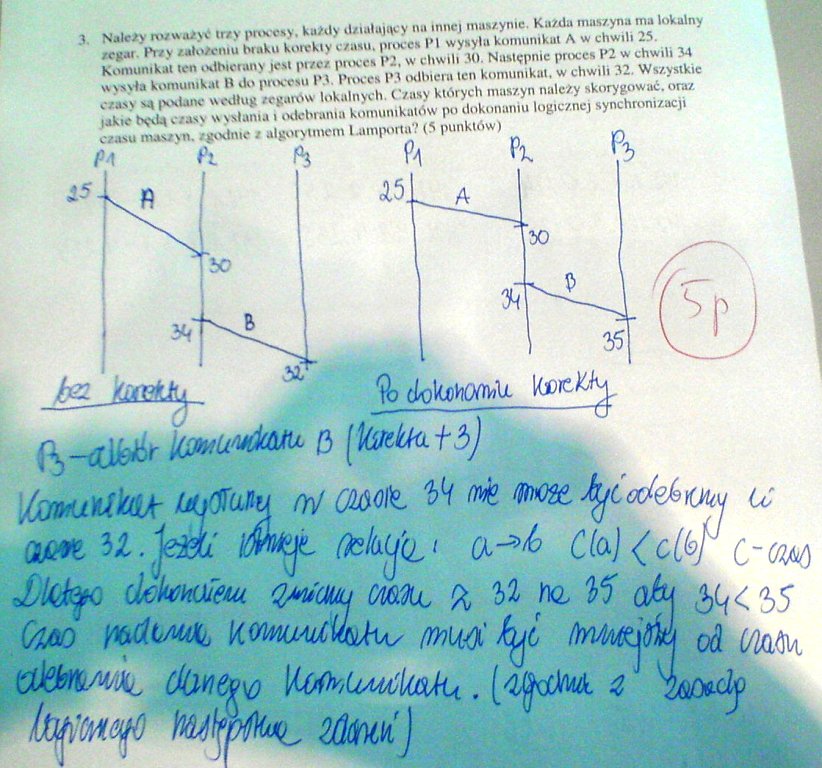 3. Należy rozważyć trzy procesy, każdy działający na innej maszynie. Każda maszyna ma lokalny
zegar. Przy założeniu braku korekty czasu, proces P1 wysyła komunikat A w chwili 25.
Komunikat ten odbierany jest przez proces P2, w chwili 30. Następnie proces P2 w chwili 34
wysyła komunikat B do procesu P3. Proces P3 odbiera ten komunikat, w chwili 32. Wszystkie
czasy są podane według zegarów lokalnych. Czasy których maszyn należy skorygować, oraz
jakie będą czasy wysłania i odebrania komunikatów po dokonaniu logicznej synchronizacji
czasu maszyn, zgodnie z algorytmem Lamporta? (5 punktów)
P1 P2 P3
25 A
30
34 B
32
bez korekty
P1 P2 P3
25 A
30
34 B
35
Po dokonaniu korekty
5p
P3 – odbiór komunikatu B (korekta +3)
Komunikat wysłany w czasie 34 nie może być odebrany w
czasie 32. Jeżeli istnieje relacja: a→b C(a) < C(b) C – czas
Dlatego dokonałem zmiany czasu z 32 na 35 aby 34 < 35
Czas nadania komunikatu musi być mniejszy od czasu
odebrania danego komunikatu. (zgodnie z zasadą
logicznego następstwa zdarzeń)